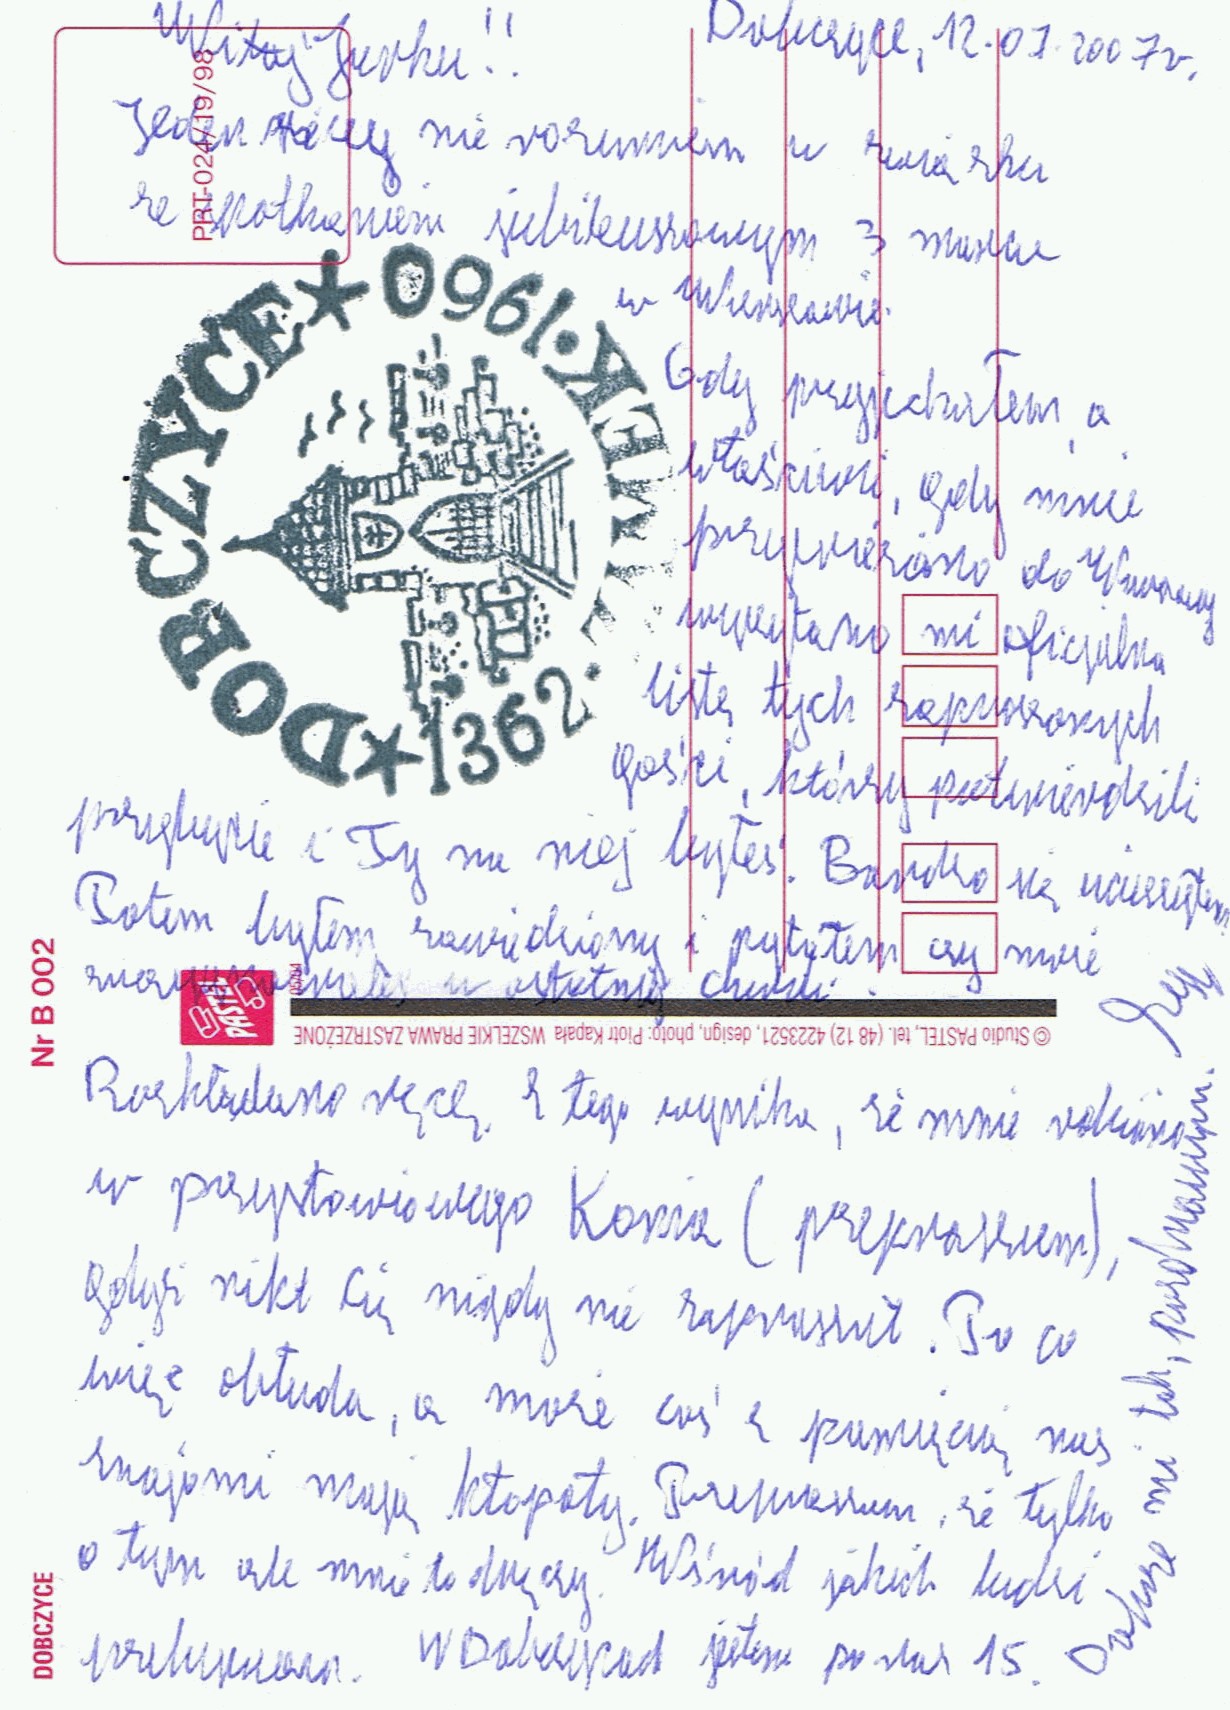 Witaj Jurku!! Dobczyce, 12.07.2007r.
Jednej rzeczy nie rozumiem w związku
ze spotkaniem jubileuszowym 3 marca
w
Gdy przyjechałem, a
właściwie, gdy mnie
przywieziono do Warszawy
wyczytano mi oficjalną
listę tych zaproszonych
gości, którzy potwierdzili
przybycie i Ty na niej byłeś. Bardzo się ucieszyłem.
Potem byłem zawiedziony i pytałem czy może
zrezygnowałeś w ostatniej chwili.
Rozkładano ręce. Z tego wynika, że mnie robiono
w przysłowiowego Konia (przepraszam),
gdyż nikt Cię nigdy nie zaprosił. Po co
więc obłuda, a może coś z pamięcią nasi
znajomi mają kłopoty. Przepraszam, że tylko
o tym ale mnie to dręczy. Wśród jakich ludzi
przebywam. W Dobczycach jestem po raz 15.
Dobrze mi tak, pozdrawiam.
DOBCZYCE ★ 1960 · 1362 ★
PRT-024/19/98
Nr B 002
DOBCZYCE
PASTEL
© Studio PASTEL, tel. (48 12) 4223521, design, photo: Piotr Kapała WSZELKIE PRAWA ZASTRZEŻONE